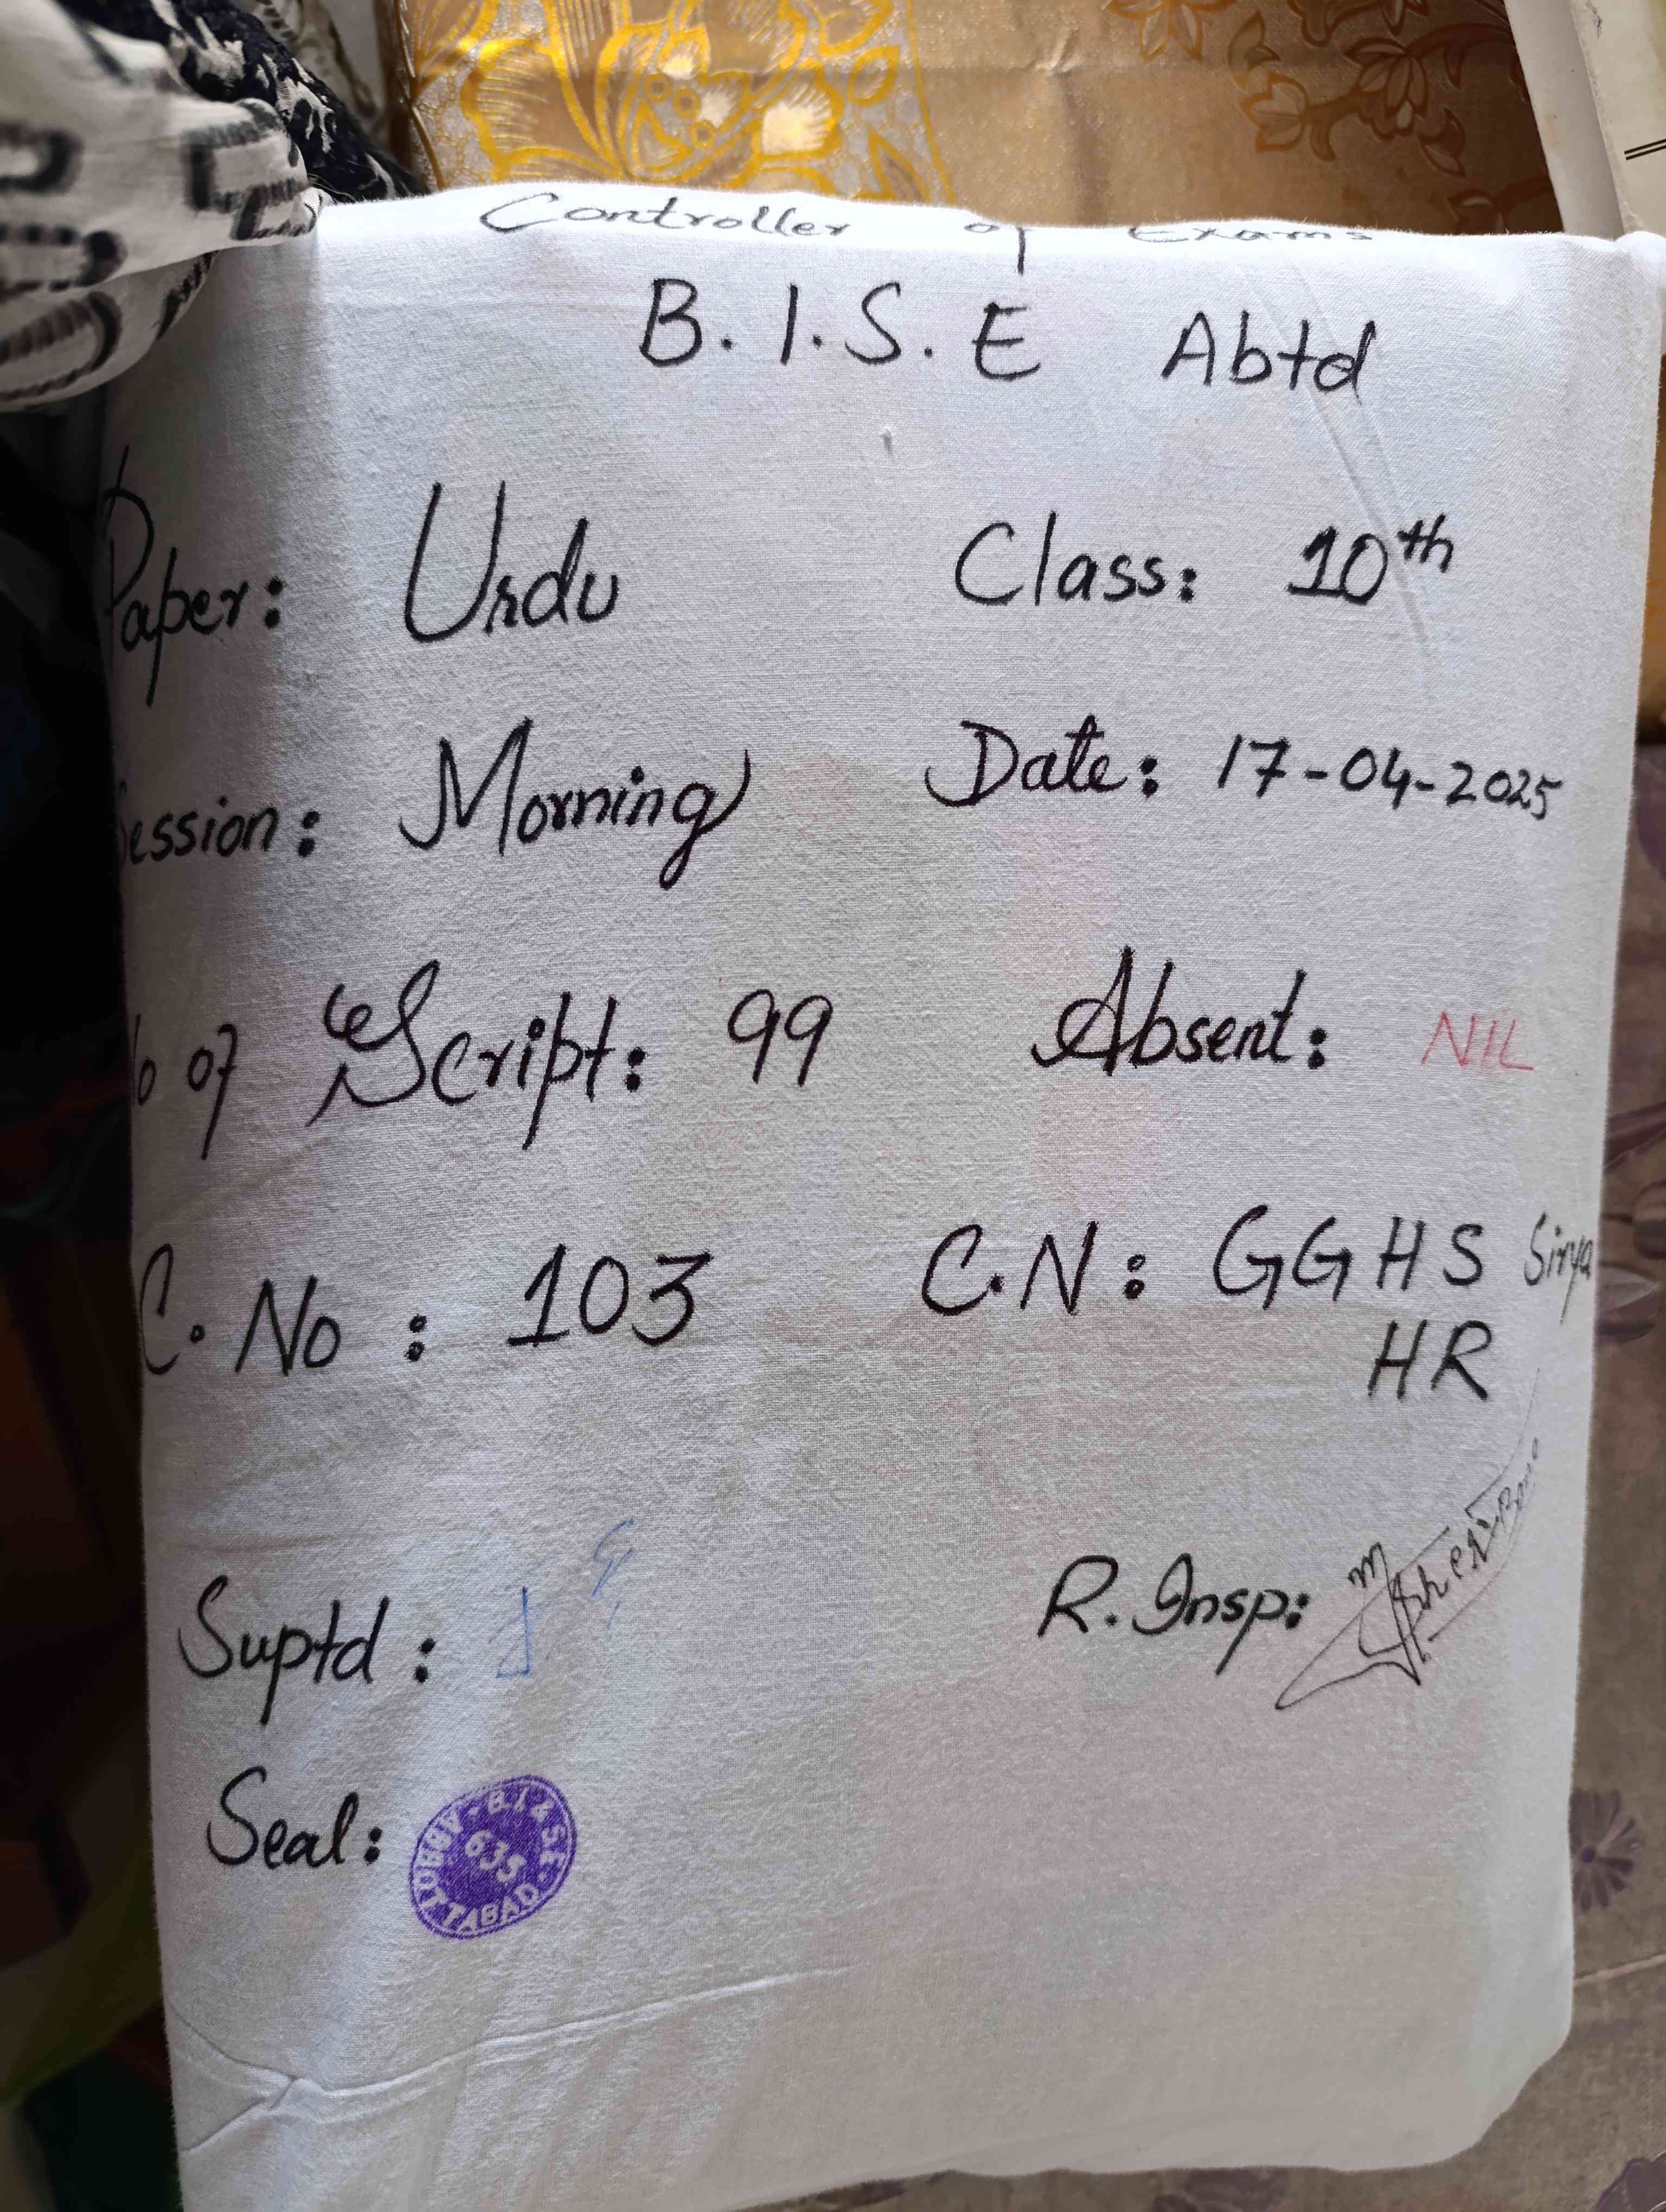 Controller of Exams
B.I.S.E Abtd
Paper: Urdu Class: 10th
Session: Morning Date: 17-04-2025
No of Script: 99 Absent: NIL
C. No : 103 C.N: GGHS Sirya
HR
Suptd : R. Insp:
Seal: B.I & S.E. ABBOTTABAD
635